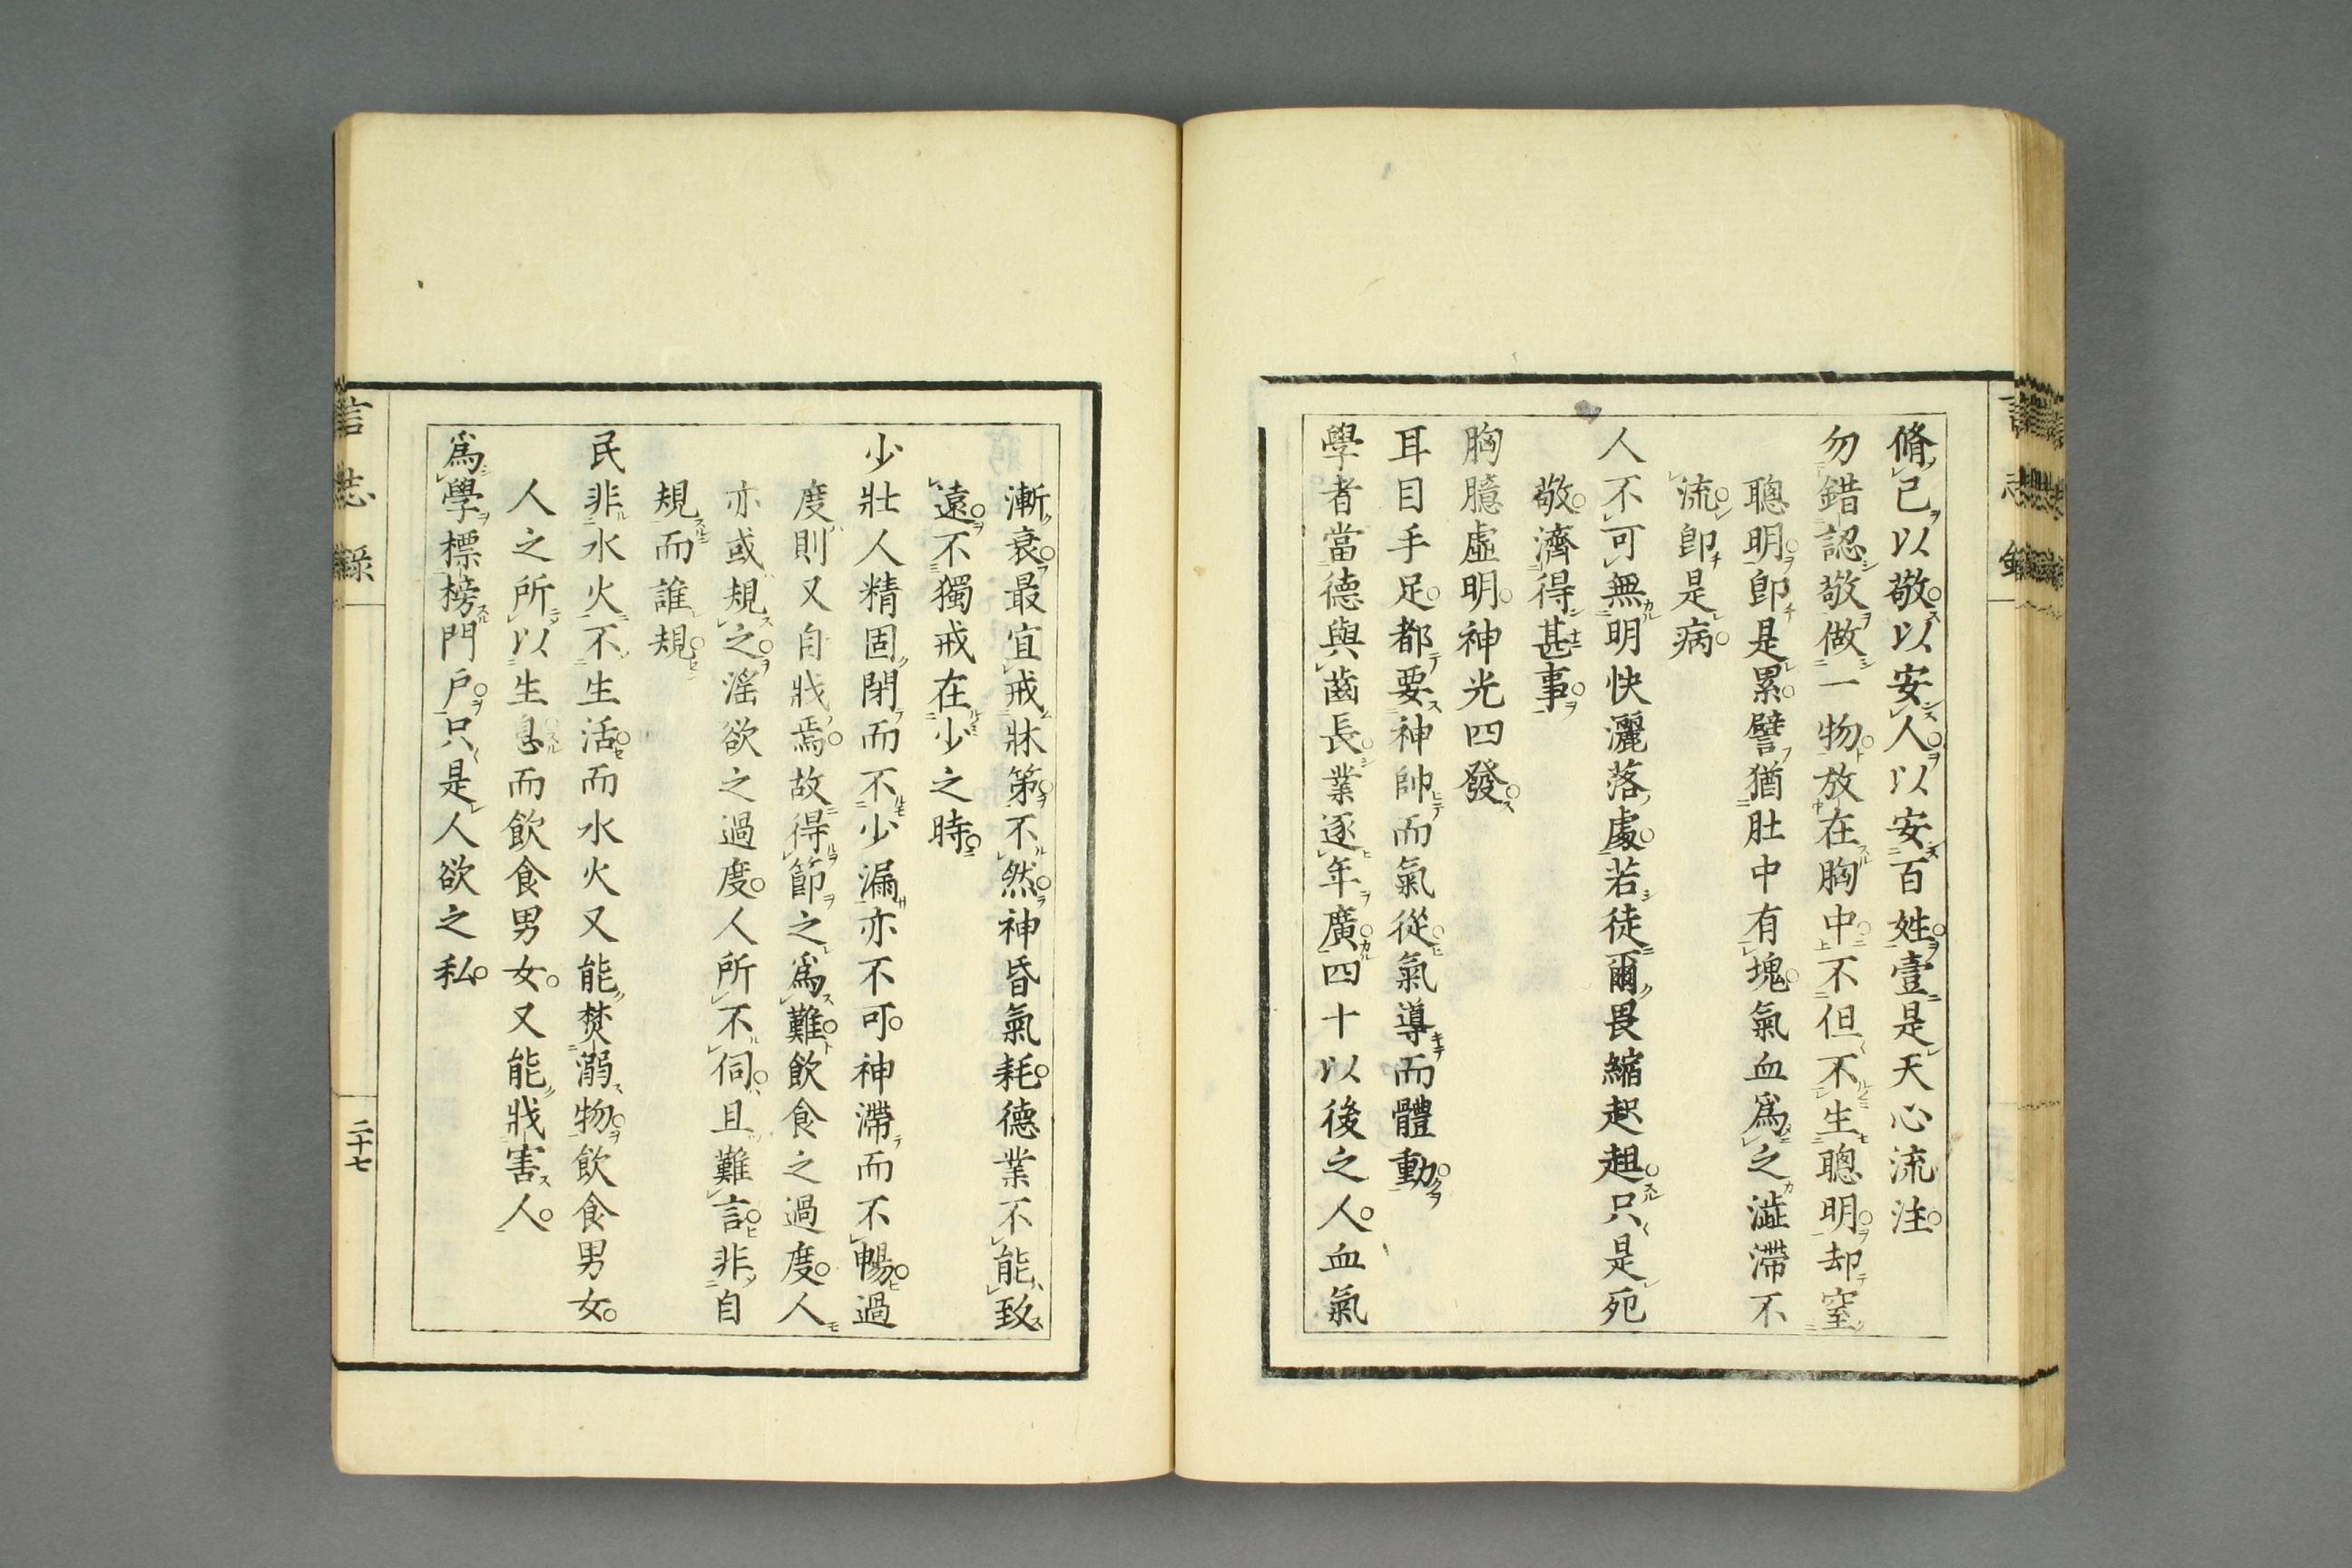 脩己以敬以安人以安百姓壹是天心流注
勿錯認敬做一物放在胸中不但不生聰明却窒
聰明卽是累譬猶肚中有塊氣血爲之澁滯不
流卽是病
人不可無明快灑落處若徒爾畏縮趑趄只是死
敬濟得甚事
胸臆虛明神光四發
耳目手足都要神帥而氣從氣導而體動
學者當德與齒長業逐年廣四十以後之人血氣
漸衰最宜戒牀第不然神昏氣耗德業不能致
遠不獨戒在少之時
少壯人精固閉而不少漏亦不可神滯而不暢過
度則又自戕焉故得節之爲難飲食之過度人
亦或規之滛欲之過度人所不伺且難言非自
規而誰規
民非水火不生活而水火又能焚溺物飲食男女
人之所以生息而飲食男女又能戕害人
爲學標榜門戶只是人欲之私
言志錄
二十七